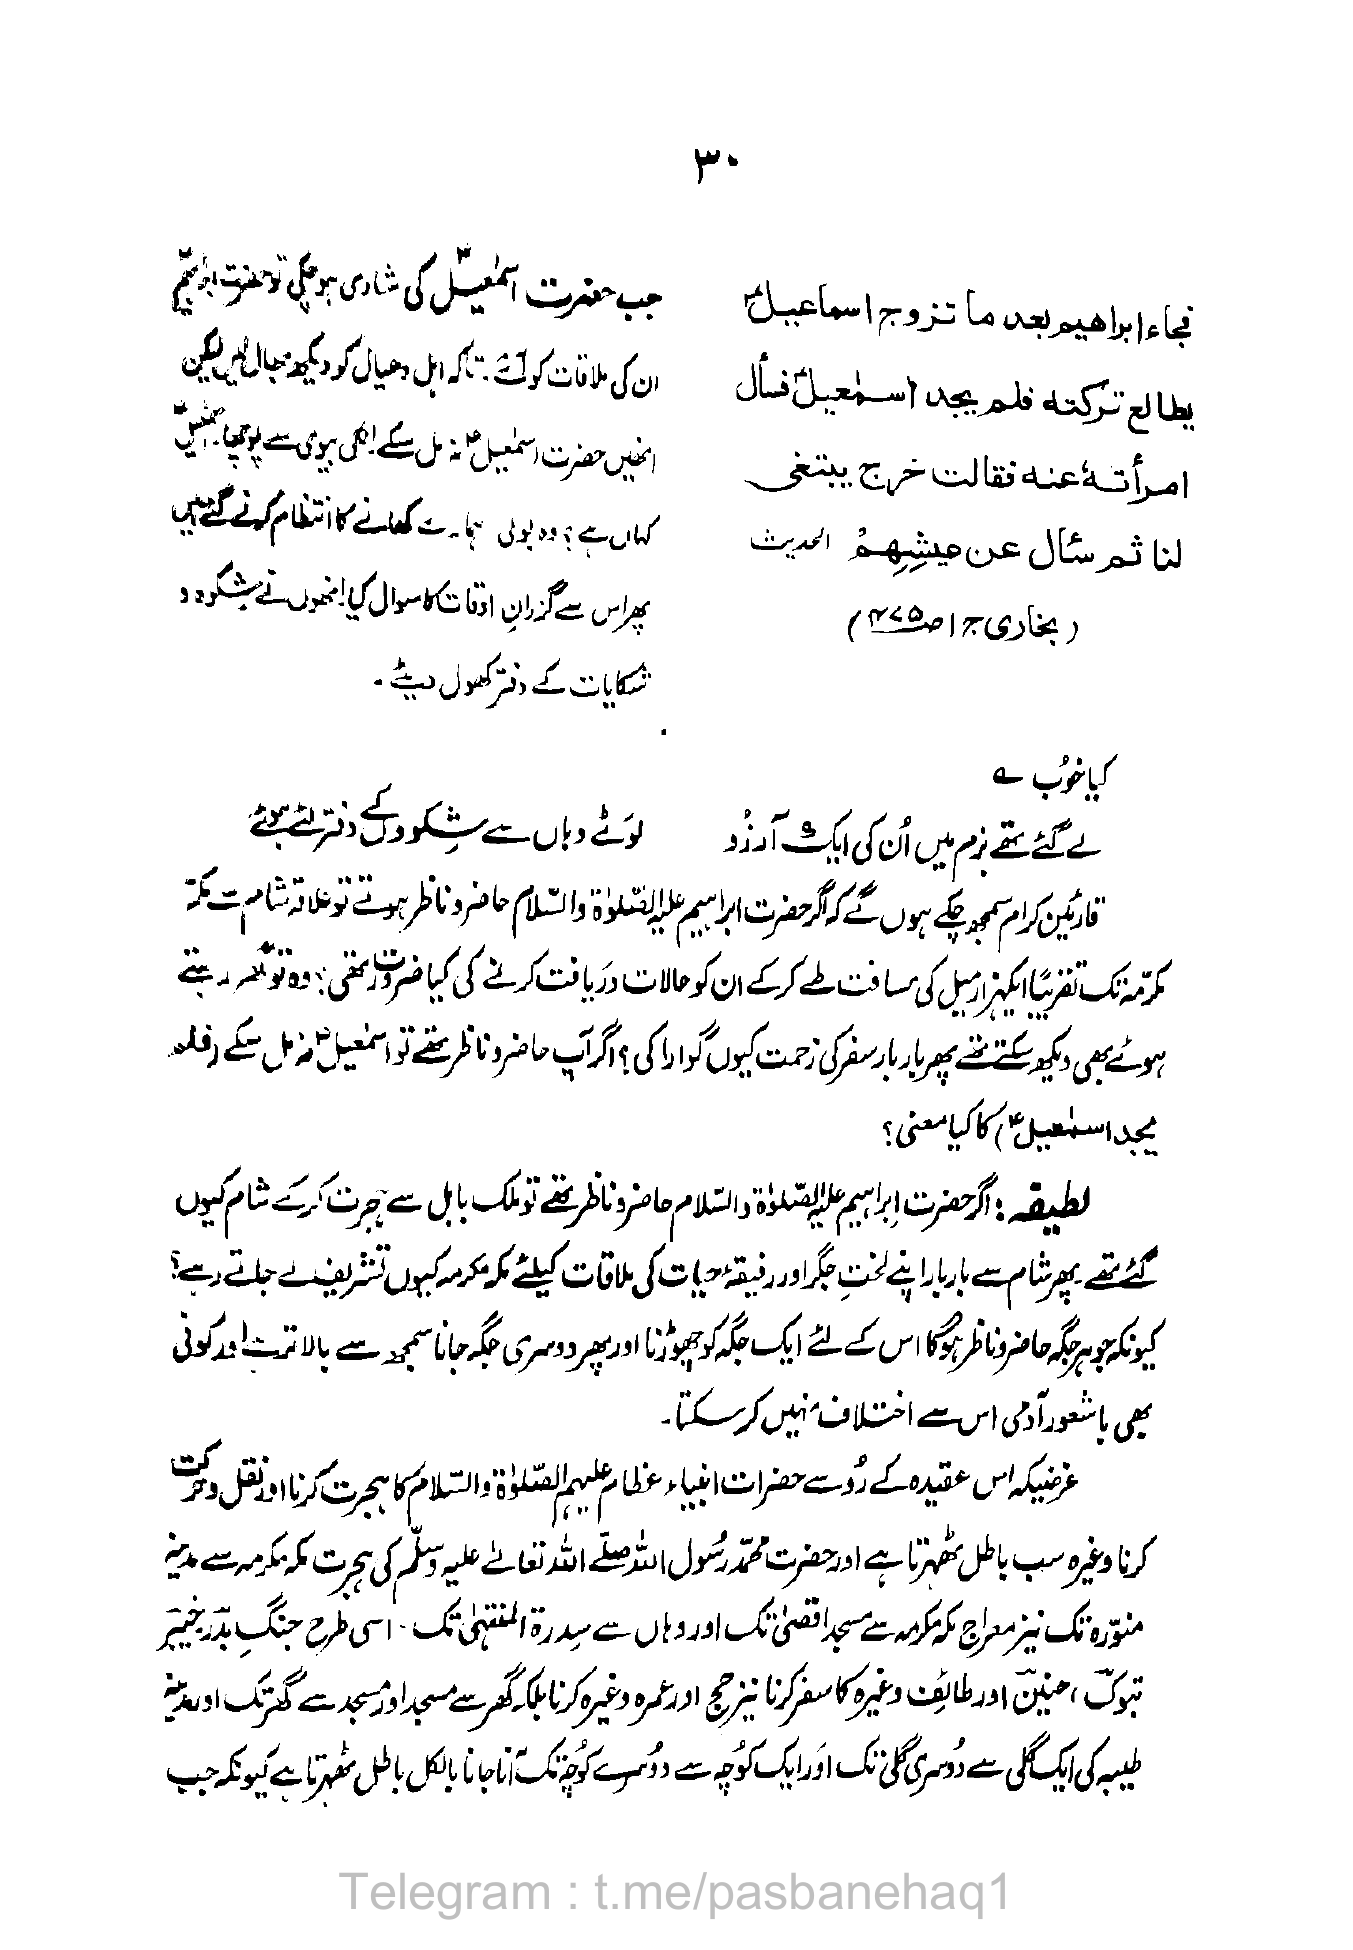 ۳۰
فجاء ابراهيم بعد ما تزوج اسماعيلؑ
يطالع تركته فلم يجد اسمٰعيلؑ فسأل
امرأتهٗ عنه فقالت خرج يبتغي
لنا ثم سأل عن عيشِهِمْ الحديث
(بخاری ج ۱ ص۴۷۵)
جب حضرت اسمٰعیلؑ کی شادی ہو چکی تو حضرت ابراہیمؑ
ان کی ملاقات کو آئے۔ تاکہ اہل و عیال کو دیکھ بھال لیں لیکن
انھیں حضرت اسمٰعیلؑ نہ مل سکے۔ انکی بیوی سے پوچھا۔ اسمٰعیلؑ
کہاں ہے؟ وہ بولی ہمارے کھانے کا انتظام کرنے گئے ہیں
پھر اس سے گزرانِ اوقات کا سوال کیا۔ انھوں نے شکوہ و
شکایات کے دفتر کھول دیئے۔
کیا خوُب ؎
لے گئے تھے بزم میں اُن کی ایک وہ آرزُو لَوٹے وہاں سے شِکووں کے دفتر لئے ہوئے
قارئین کرام سمجھ چکے ہوں گے کہ اگر حضرت ابراہیم علیہ الصّلوٰۃ والسّلام حاضر و ناظر ہوتے تو علاقہ شام سے مکّہ
مکرّمہ تک تقریبًا ایکہزار میل کی مسافت طے کر کے ان کو حالات دریافت کرنے کی کیا ضرورت تھی؟ وہ تو گھر رہتے
ہوئے بھی دیکھ سکتے تھے پھر بار بار سفر کی زحمت کیوں گوارا کی؟ اگر آپ حاضر و ناظر تھے تو اسمٰعیلؑ نہ مل سکے (فلم
یجد اسمٰعیلؑ) کا کیا معنی؟
لطیفہ: اگر حضرت اِبراہیم علیہ الصّلوٰۃ والسّلام حاضر و ناظر تھے تو ملک بابل سے ہجرت کر کے شام کیوں
گئے تھے پھر شام سے بار بار اپنے لختِ جگر اور رفیقۂ حیات کی ملاقات کیلئے مکہ مکرمہ کیوں تشریف لے جاتے رہے؟
کیونکہ جو ہر جگہ حاضر و ناظر ہو گا اس کے لئے ایک جگہ کو چھوڑنا اور پھر دوسری جگہ جانا سمجھ سے بالاتر ہے اور کوئی
بھی باشعور آدمی اس سے اختلاف نہیں کر سکتا۔
غرضیکہ اس عقیدہ کے رُو سے حضرات انبیاء عظام علیہم الصّلوٰۃ والسّلام کا ہجرت کرنا اور نقل و حرکت
کرنا وغیرہ سب باطل ٹھہرتا ہے اور حضرت محمّد رسُول اللہ صلے اللہ تعالےٰ علیہ وسلّم کی ہجرت مکہ مکرمہ سے مدینہ
منوّرہ تک نیز معراج مکہ مکرمہ سے مسجد اقصیٰ تک اور وہاں سے سِدرۃ المنتہیٰ تک۔ اسی طرح جنگِ بدر، خیبر
تبوک، حنین اور طائف وغیرہ کا سفر کرنا نیز حج اور عمرہ وغیرہ کرنا بلکہ گھر سے مسجد اور مسجد سے گھر تک اور مدینہ
طیبہ کی ایک گلی سے دُوسری گلی تک اور ایک کوُچہ سے دوُسرے کوُچہ تک آنا جانا بالکل باطل ٹھہرتا ہے کیونکہ جب
Telegram : t.me/pasbanehaq1